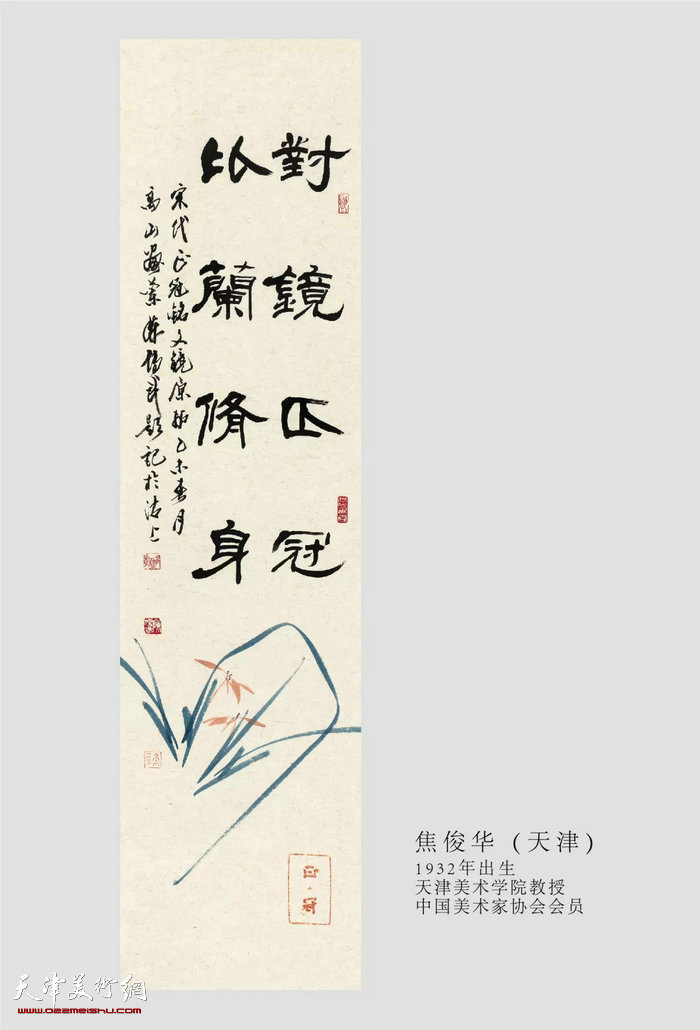 對鏡正冠
以蘭脩身
宋代正冠銘文鏡原拓乙未春月
高山
題記於沽上
正·冠
焦俊华（天津）
1932年出生
天津美术学院教授
中国美术家协会会员
天津美術網
www.022meishu.com